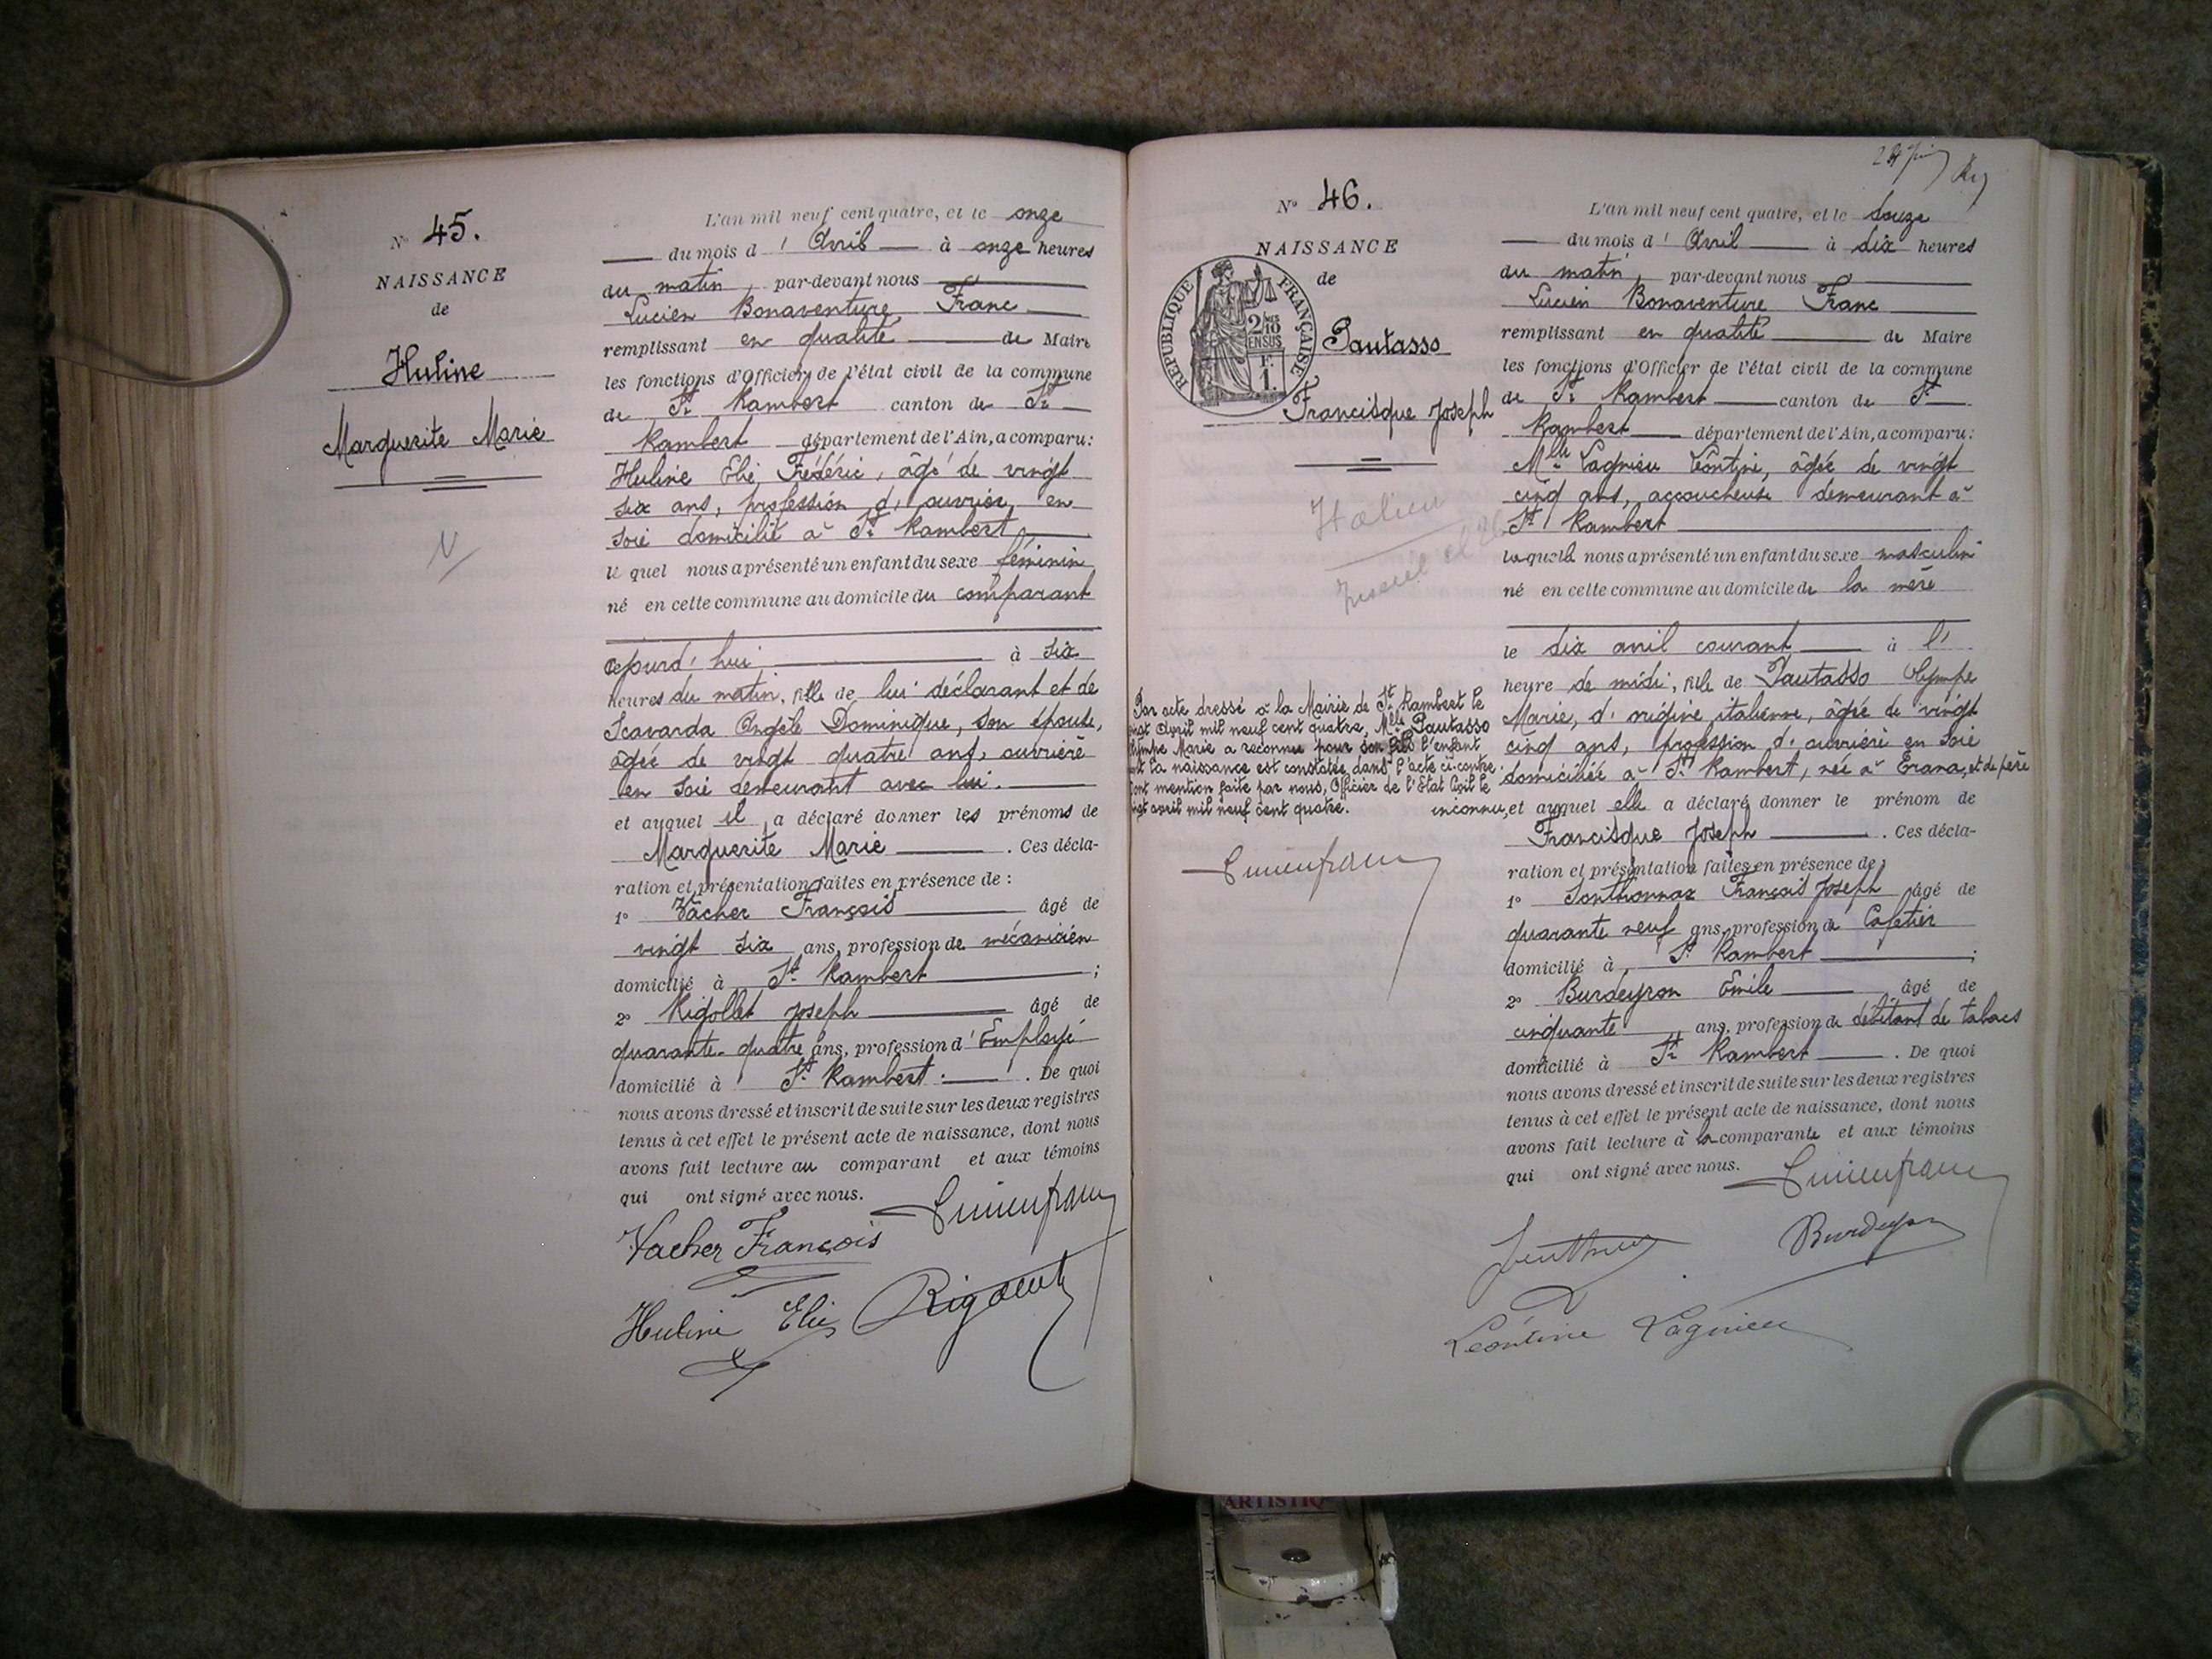 N° 45.
NAISSANCE
de
Huline
Marguerite Marie
L'an mil neuf cent quatre, et le onze
du mois d' Avril à onze heures
du matin, par-devant nous
Lucien Bonaventure Franc
remplissant en qualité de Maire
les fonctions d'Officier de l'état civil de la commune
de St Rambert canton de St
Rambert département de l'Ain, a comparu:
Huline Elie Frédéric, âgé de vingt
six ans, profession d' ouvrier en
soie domicilié à St Rambert
le quel nous a présenté un enfant du sexe féminin
né en cette commune au domicile du comparant
cejourd'hui à six
heures du matin, fille de lui déclarant et de
Scavarda Angèle Dominique, son épouse,
âgée de vingt quatre ans, ouvrière
en soie demeurant avec lui.
et auquel il a déclaré donner les prénoms de
Marguerite Marie . Ces décla-
ration et présentation faites en présence de :
1° Vâcher François âgé de
vingt six ans, profession de mécanicien
domicilié à St Rambert ;
2° Rigollet Joseph âgé de
quarante-quatre ans, profession d'Employé
domicilié à St Rambert. . De quoi
nous avons dressé et inscrit de suite sur les deux registres
tenus à cet effet le présent acte de naissance, dont nous
avons fait lecture au comparant et aux témoins
qui ont signé avec nous. Lucien franc
Vacher François
Huline Elie
N° 46.
NAISSANCE
de
RÉPUBLIQUE FRANÇAISE
2/10 EN SUS
F.
1.
Pautasso
Francisque Joseph
Italien
Par acte dressé à la Mairie de St Rambert le
Avril mil neuf cent quatre, Melle Pautasso
Marie a reconnu pour son fils l'enfant
la naissance est constatée dans l'acte ci-contre.
mention faite par nous, Officier de l'Etat Civil le
avril mil neuf cent quatre.
Lucien franc
L'an mil neuf cent quatre, et le douze
du mois d' Avril à dix heures
du matin, par-devant nous
Lucien Bonaventure Franc
remplissant en qualité de Maire
les fonctions d'Officier de l'état civil de la commune
de St Rambert canton de St
Rambert département de l'Ain, a comparu:
Melle Lagnieu Léontine, âgée de vingt
cinq ans, accoucheuse demeurant à
St Rambert
laquelle nous a présenté un enfant du sexe masculin
né en cette commune au domicile de la mère
le dix avril courant à l'
heure de midi, fils de Pautasso Olympe
Marie, d'origine italienne, âgée de vingt
cinq ans, profession d'ouvrière en soie
domiciliée à St Rambert, née à Erana, et de père
inconnu, et auquel elle a déclaré donner le prénom de
Francisque Joseph . Ces décla-
ration et présentation faites en présence de :
1° Sonthonnax François Joseph âgé de
quarante neuf ans, profession de Cafetier
domicilié à St Rambert ;
2° Burdeyron Emile âgé de
cinquante ans, profession de débitant de tabacs
domicilié à St Rambert . De quoi
nous avons dressé et inscrit de suite sur les deux registres
tenus à cet effet le présent acte de naissance, dont nous
avons fait lecture à la comparante et aux témoins
qui ont signé avec nous. Lucien franc
Léontine Lagnieu